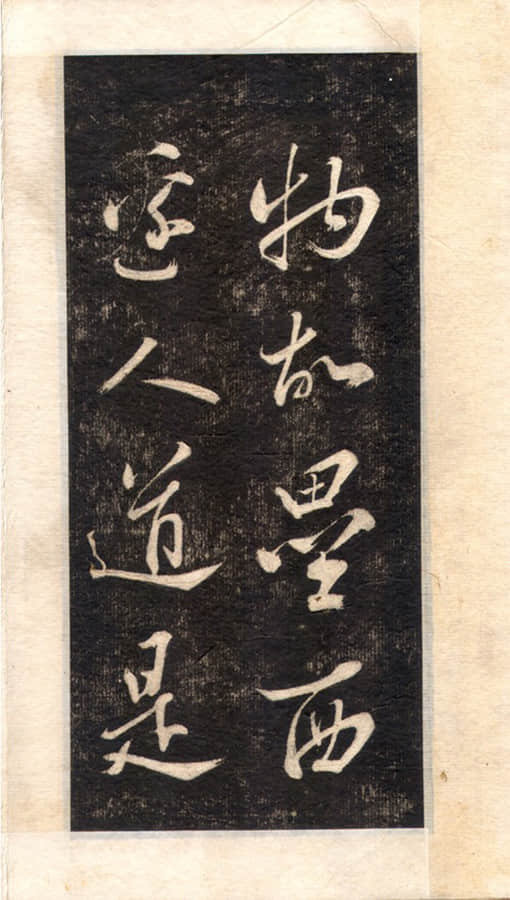 物故壘西
邊人道是